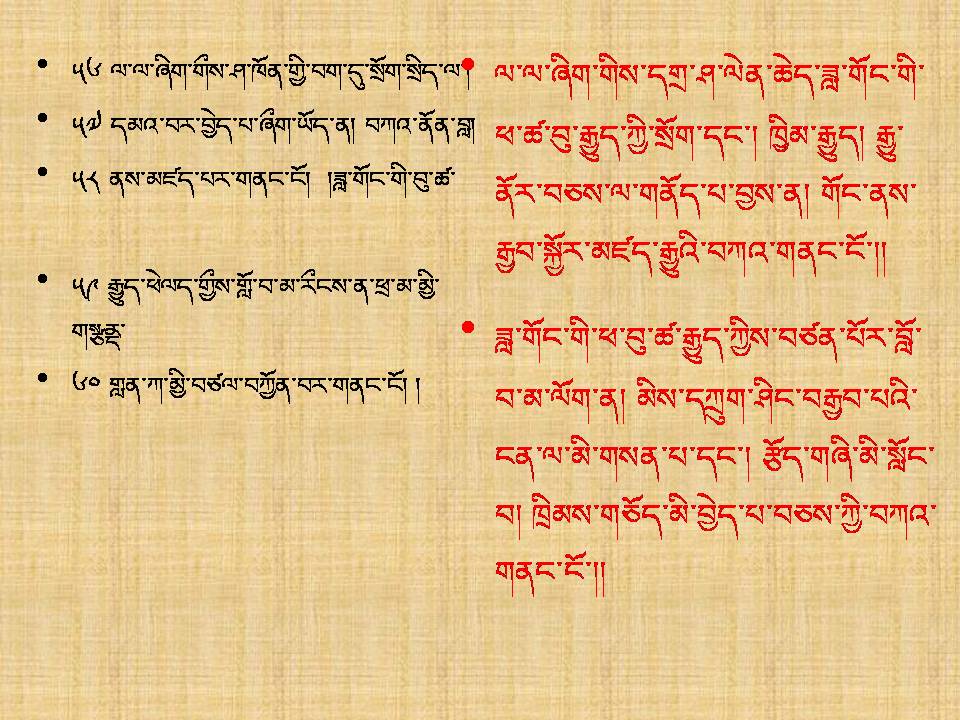 ༥༦ ལ་ལ་ཞིག་གིས་ཤ་ཁོན་གྱི་བག་དུ་སྲོག་སྲིད་ལ།
༥༧ དམའ་བར་བྱེད་པ་ཞིག་ཡོད་ན། བཀའ་ནོན་བླ།
༥༨ ནས་མཛད་པར་གནང་ངོ། །ཟླ་གོང་གི་བུ་ཚ་
༥༩ རྒྱུད་ཕེལད་གྱིས་གློ་བ་མ་རིངས་ན་ཕྲ་མ་མྱི་
གསྣནྡ་
༦༠ གླན་ཀ་མྱི་བཙལ་བཀྱོན་བར་གནང་ངོ། །
ལ་ལ་ཞིག་གིས་དགྲ་ཤ་ལེན་ཆེད་ཟླ་གོང་གི་
ཕ་ཚ་བུ་རྒྱུད་ཀྱི་སྲོག་དང་། ཁྱིམ་རྒྱུད། རྒྱུ་
ནོར་བཅས་ལ་གནོད་པ་བྱས་ན། གོང་ནས་
རྒྱབ་སྐྱོར་མཛད་རྒྱུའི་བཀའ་གནང་ངོ་།།
ཟླ་གོང་གི་ཕ་བུ་ཚ་རྒྱུད་ཀྱིས་བཙན་པོར་བློ་
བ་མ་ལོག་ན། མིས་དཀྲུག་ཤིང་བརྒྱབ་པའི་
ངན་ལ་མི་གསན་པ་དང་། རྩོད་གཞི་མི་སློང་
བ། ཁྲིམས་གཅོད་མི་བྱེད་པ་བཅས་ཀྱི་བཀའ་
གནང་ངོ་།།